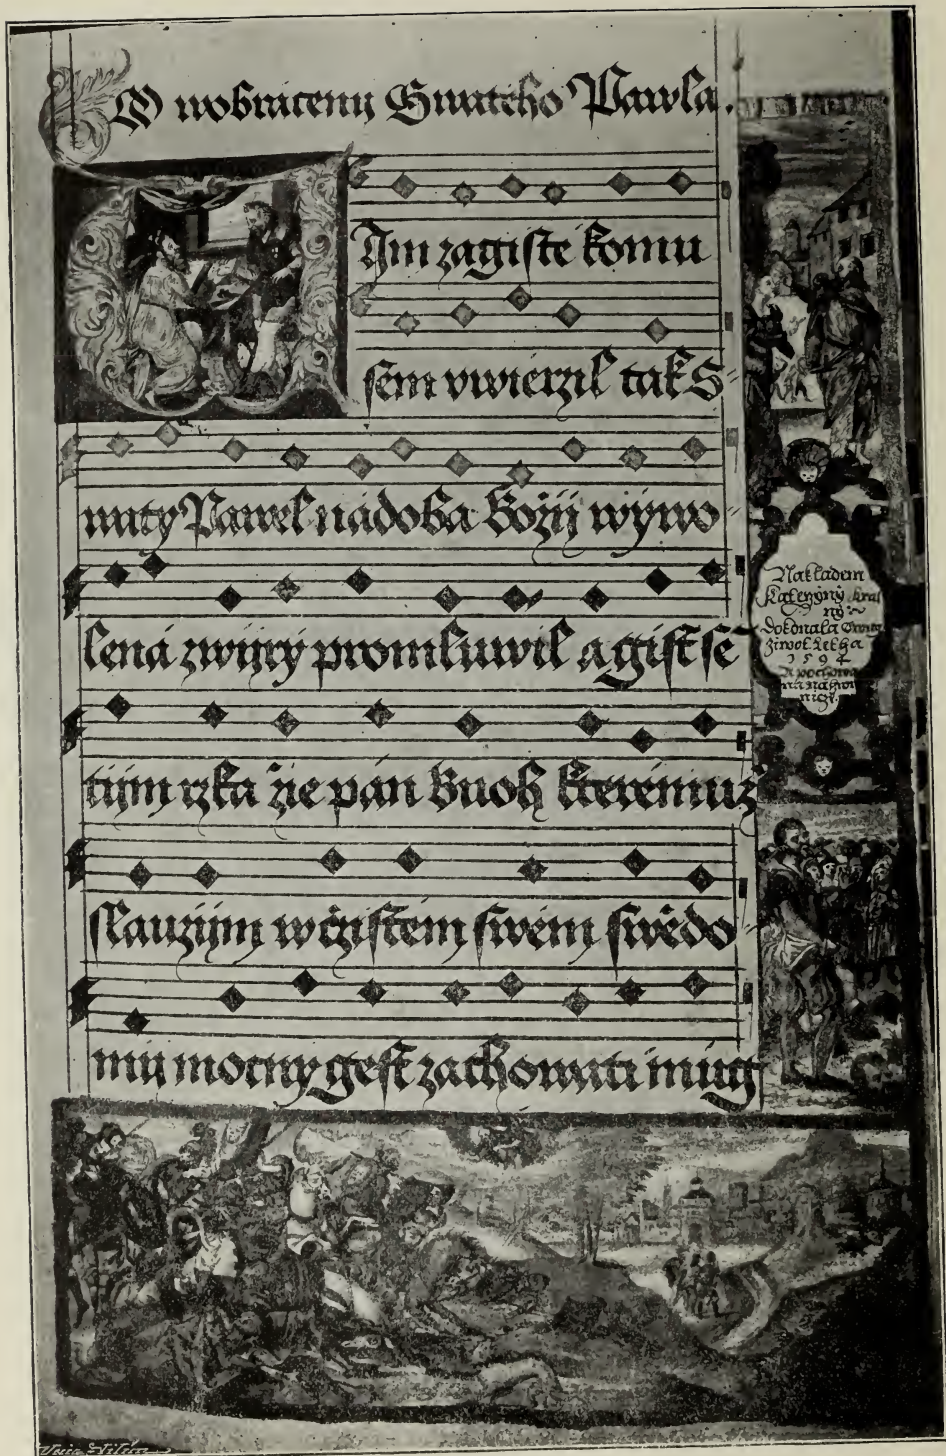 O wobráceny Swatého Pawla.
Vjm zagisté komu
sem vwierzil tak S
waty Pawel nádoba Božij wywo
lená zwijry promluwil a gist se
tijm rzka žie pán Buoh kterémuž
slaužijm w cžistém swém swědo
mij mocny gest zachowati mug
Nakladem
Katerzyny Kral
ny
dokonala
žiwot Letha
1594